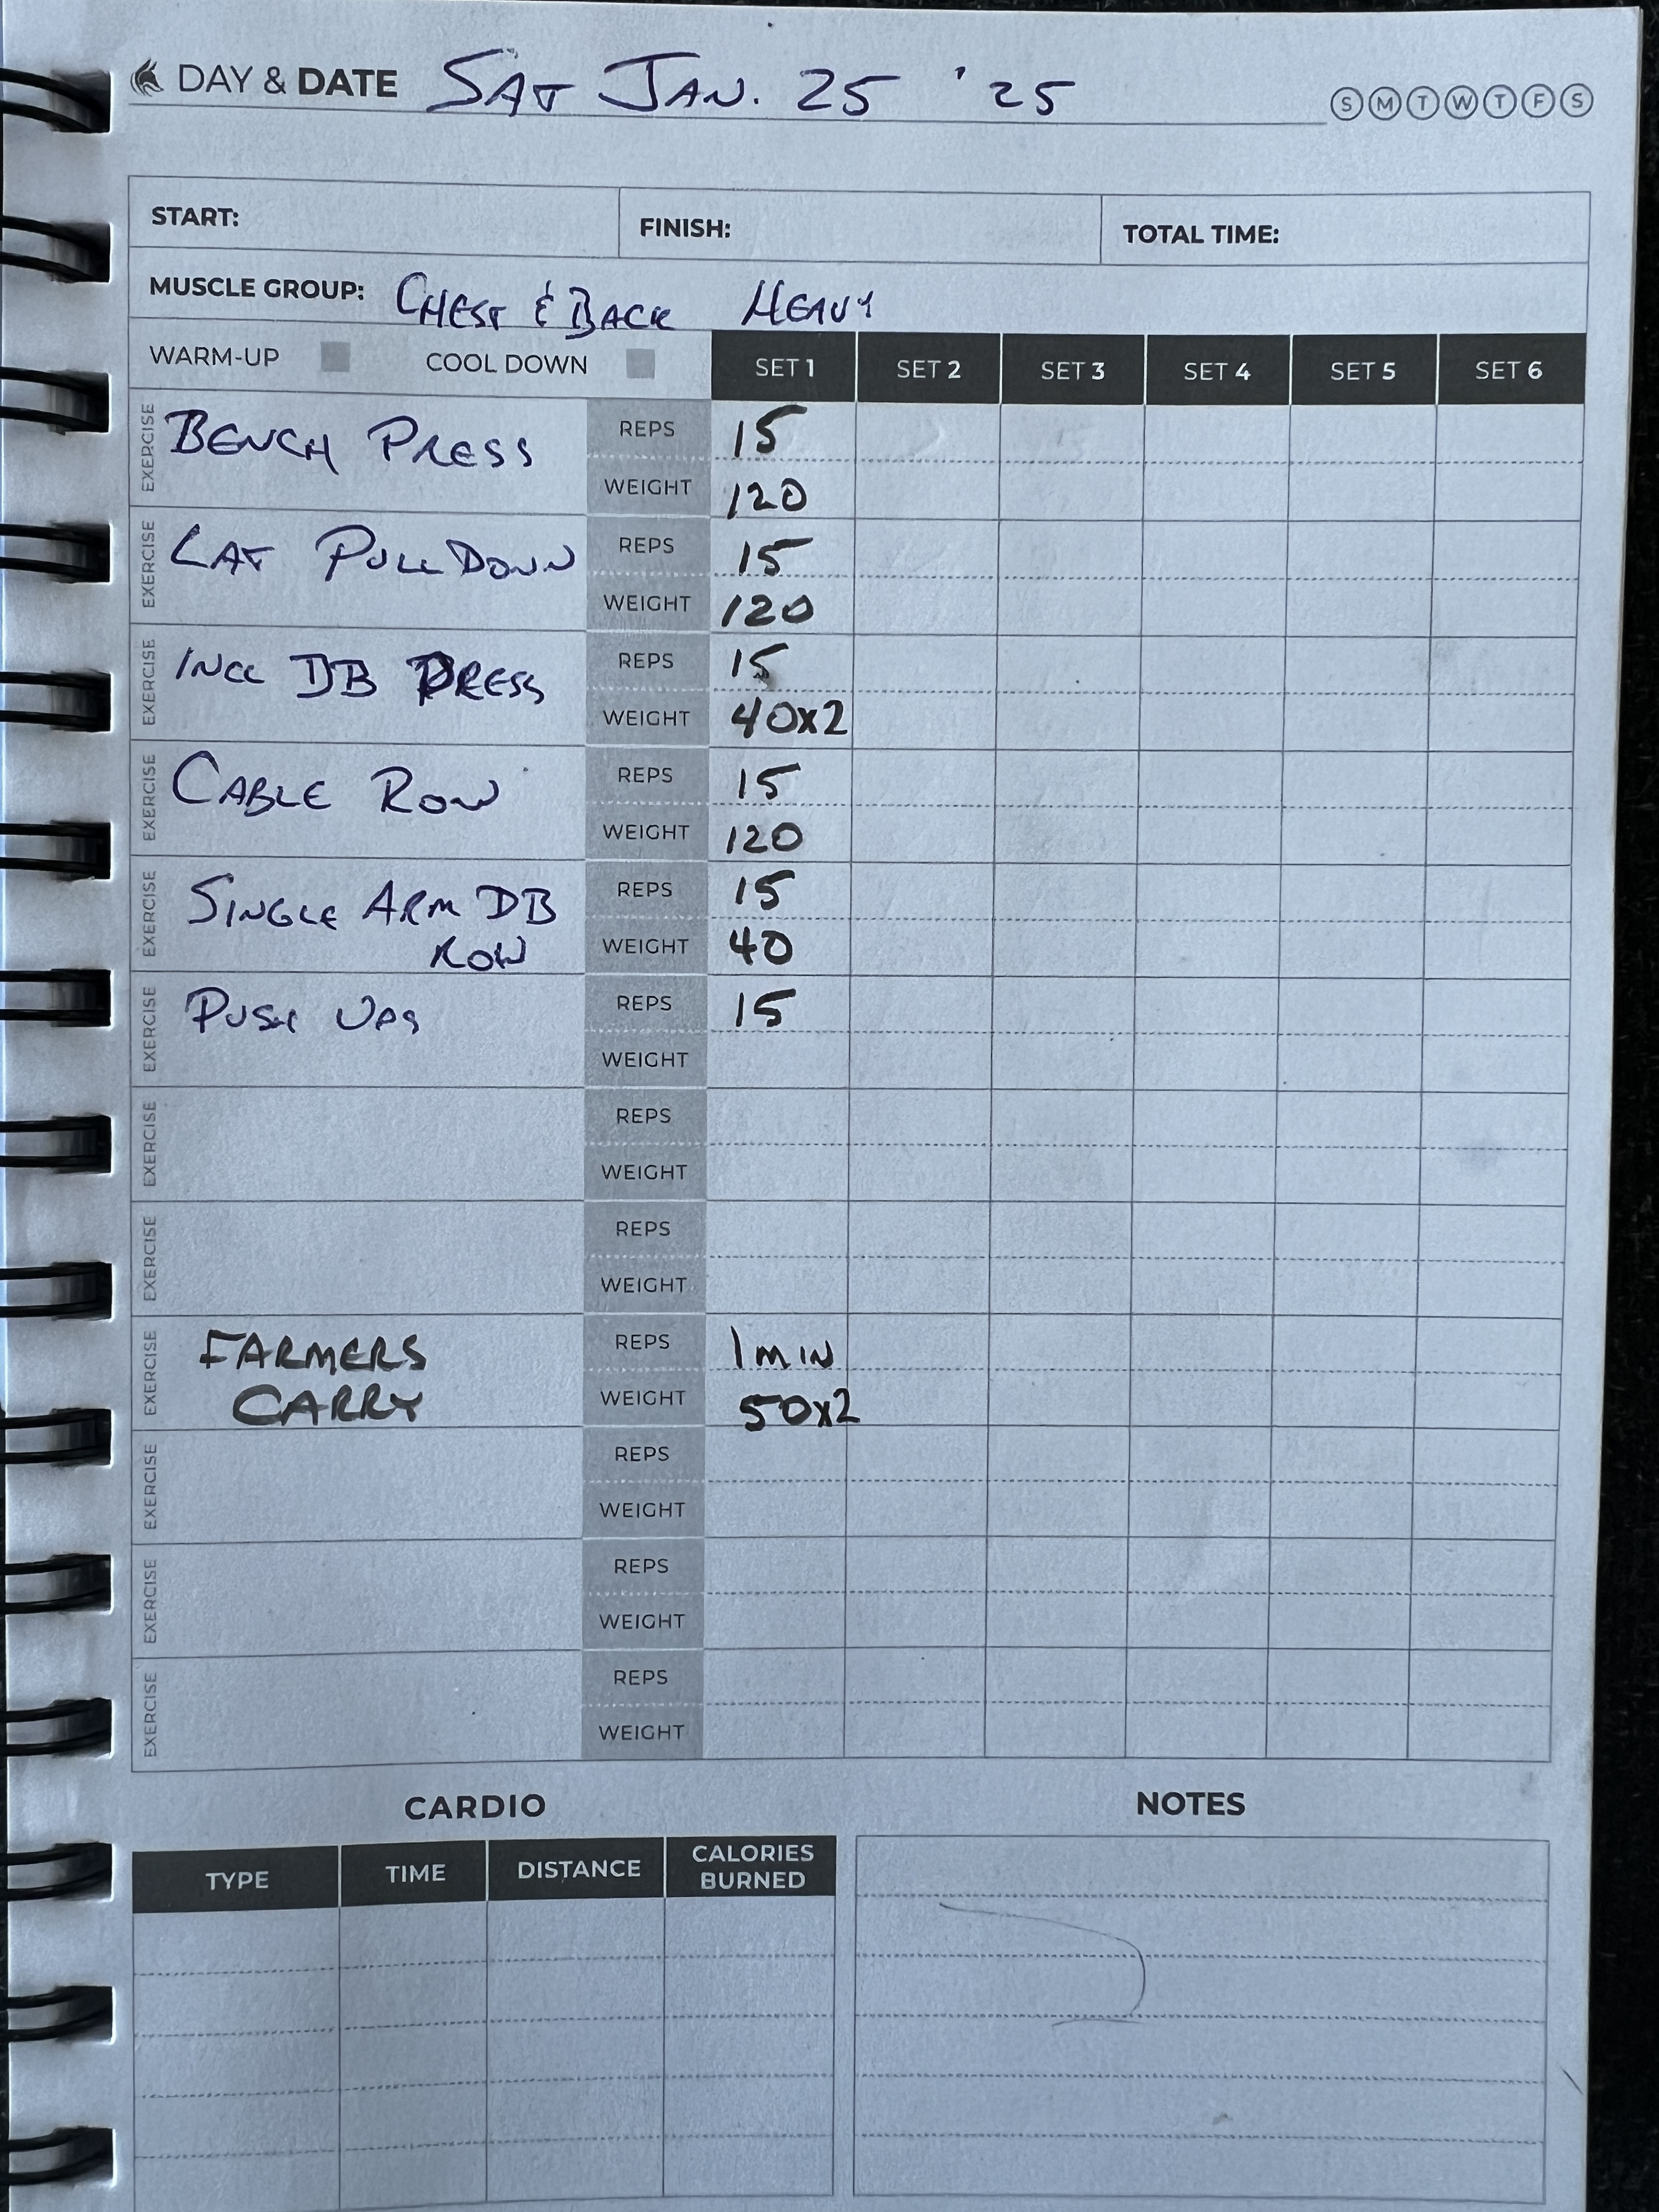 DAY & DATE SAT JAN. 25 '25 S M T W T F S
START: FINISH: TOTAL TIME:
MUSCLE GROUP: CHEST & BACK HEAVY
WARM-UP COOL DOWN SET 1 SET 2 SET 3 SET 4 SET 5 SET 6
EXERCISE BENCH PRESS REPS 15
WEIGHT 120
EXERCISE LAT PULL DOWN REPS 15
WEIGHT 120
EXERCISE INCL DB PRESS REPS 15
WEIGHT 40x2
EXERCISE CABLE ROW REPS 15
WEIGHT 120
EXERCISE SINGLE ARM DB REPS 15
ROW WEIGHT 40
EXERCISE PUSH UPS REPS 15
WEIGHT
EXERCISE REPS
WEIGHT
EXERCISE REPS
WEIGHT
EXERCISE FARMERS REPS 1 MIN
CARRY WEIGHT 50x2
EXERCISE REPS
WEIGHT
EXERCISE REPS
WEIGHT
EXERCISE REPS
WEIGHT
CARDIO NOTES
TYPE TIME DISTANCE CALORIES BURNED